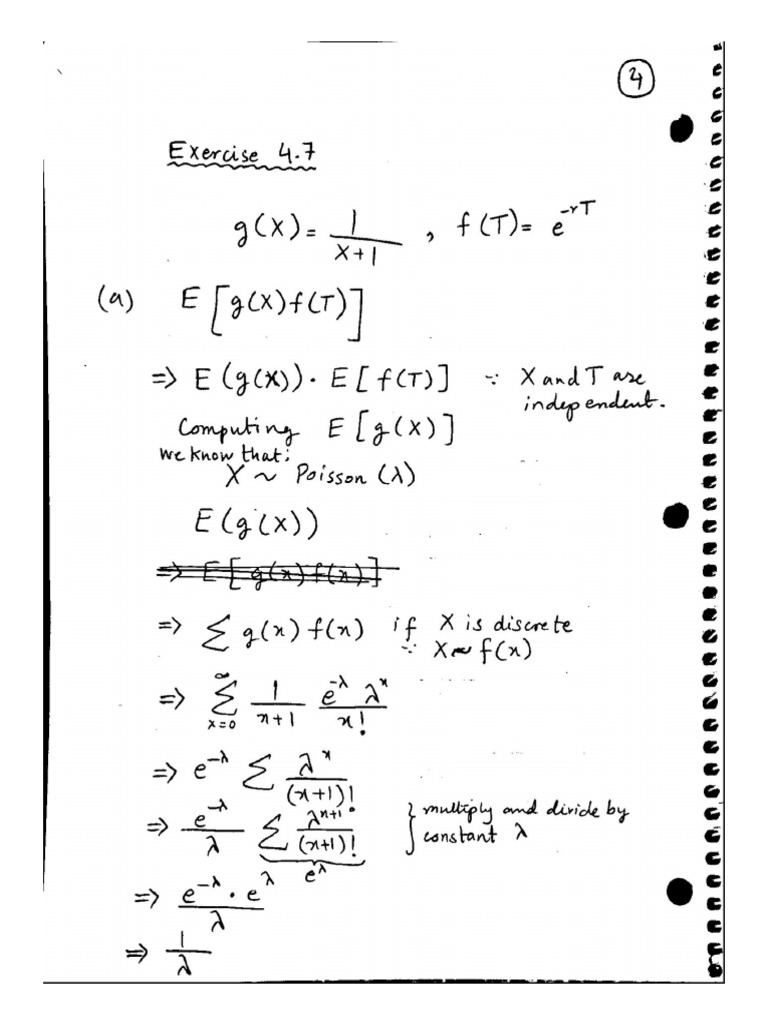 4
Exercise 4.7
g(X) = 1/(X+1) , f(T) = e^{-rT}
(a) E[g(X)f(T)]
=> E(g(X)) · E[f(T)] ∵ X and T are
independent.
Computing E[g(X)]
we know that:
X ~ Poisson (λ)
E(g(X))
=> E[g(x)f(x)]
=> Σ g(x) f(x) if X is discrete
∵ X ~ f(x)
=> Σ_{x=0}^{∞} 1/(x+1) e^{-λ} λ^x / x!
=> e^{-λ} Σ λ^x / (x+1)!
=> e^{-λ}/λ Σ λ^{x+1} / (x+1)! } multiply and divide by
constant λ
e^λ
=> e^{-λ} · e^λ / λ
=> 1/λ